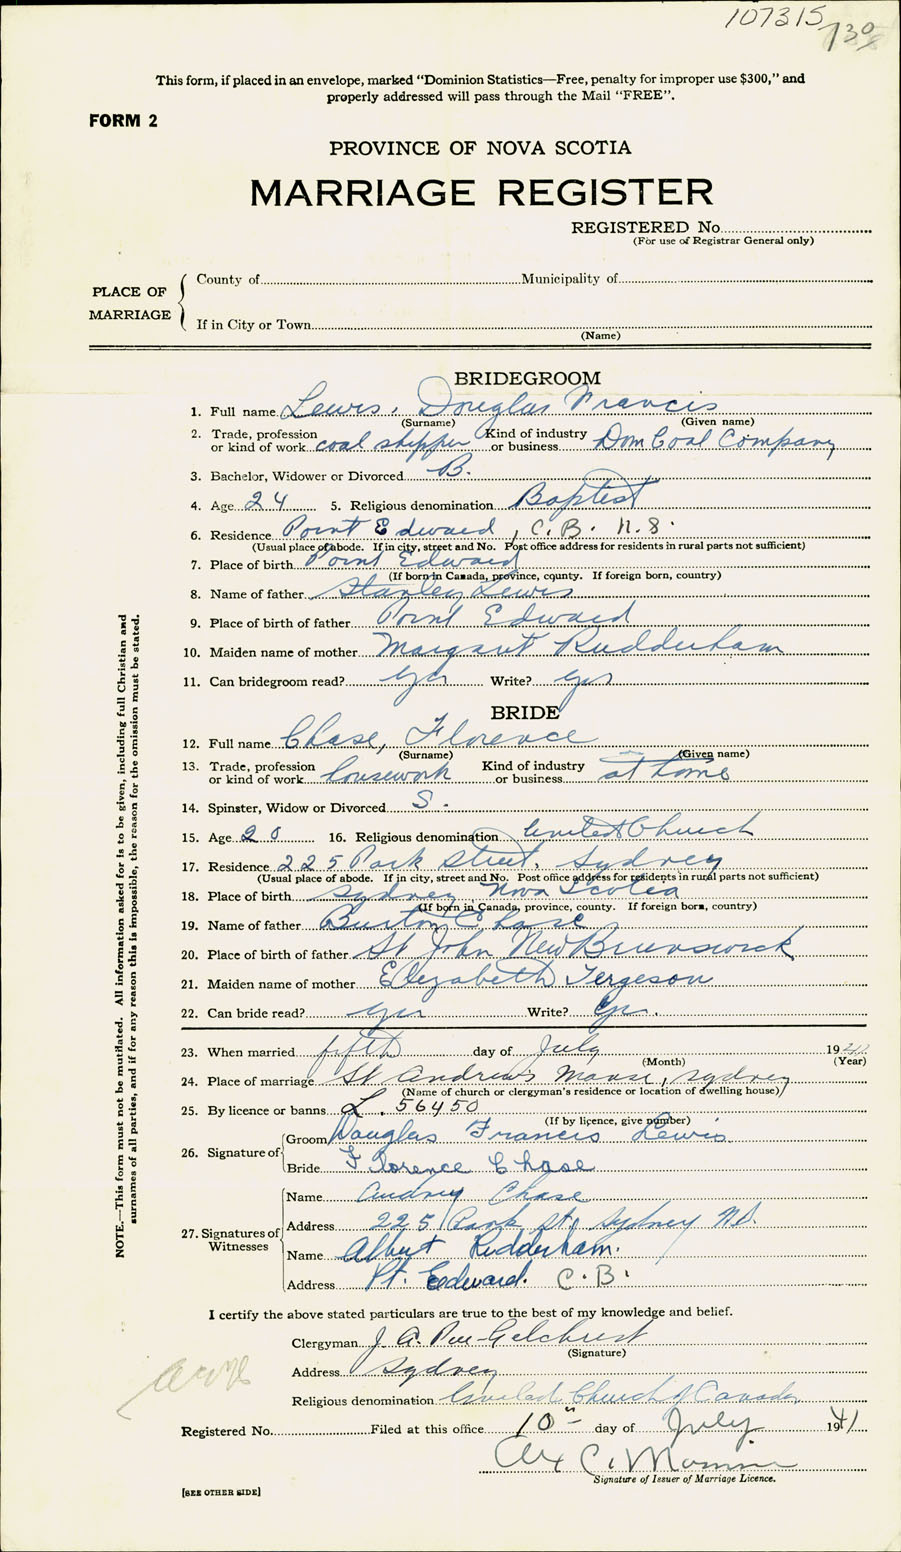 107315
730
This form, if placed in an envelope, marked "Dominion Statistics—Free, penalty for improper use $300," and
properly addressed will pass through the Mail "FREE".
FORM 2
PROVINCE OF NOVA SCOTIA
MARRIAGE REGISTER
REGISTERED No.
(For use of Registrar General only)
PLACE OF MARRIAGE
County of Municipality of
If in City or Town
(Name)
BRIDEGROOM
1. Full name Lewis, Douglas Francis
(Surname) (Given name)
2. Trade, profession or kind of work coal shipper Kind of industry or business Dom Coal Company
3. Bachelor, Widower or Divorced B.
4. Age 24 5. Religious denomination Baptist
6. Residence Point Edward, C.B. N.S.
(Usual place of abode. If in city, street and No. Post office address for residents in rural parts not sufficient)
7. Place of birth Point Edward
(If born in Canada, province, county. If foreign born, country)
8. Name of father Stanley Lewis
9. Place of birth of father Point Edward
10. Maiden name of mother Margaret Rudderham
11. Can bridegroom read? yes Write? yes
BRIDE
12. Full name Chase, Florence
(Surname) (Given name)
13. Trade, profession or kind of work housework Kind of industry or business at home
14. Spinster, Widow or Divorced S.
15. Age 20 16. Religious denomination United Church
17. Residence 225 Park Street, Sydney
(Usual place of abode. If in city, street and No. Post office address for residents in rural parts not sufficient)
18. Place of birth Sydney Nova Scotia
(If born in Canada, province, county. If foreign born, country)
19. Name of father Burton Chase
20. Place of birth of father St John New Brunswick
21. Maiden name of mother Elizabeth Fergeson
22. Can bride read? yes Write? yes.
23. When married fifth day of July 1941
(Month) (Year)
24. Place of marriage St Andrew's Manse, Sydney
(Name of church or clergyman's residence or location of dwelling house)
25. By licence or banns L. 56450
(If by licence, give number)
26. Signature of Groom Douglas Francis Lewis
Bride Florence Chase
27. Signatures of Witnesses
Name Audrey Chase
Address 225 Park St, Sydney N.S.
Name Albert Rudderham.
Address Pt. Edward. C.B.
I certify the above stated particulars are true to the best of my knowledge and belief.
Clergyman J. A. Gilchrist
(Signature)
Address Sydney
Religious denomination United Church of Canada
Registered No. Filed at this office 10th day of July 1941
Signature of Issuer of Marriage Licence.
[SEE OTHER SIDE]
NOTE.—This form must not be mutilated. All information asked for is to be given, including full Christian and
surnames of all parties, and if for any reason this is impossible, the reason for the omission must be stated.